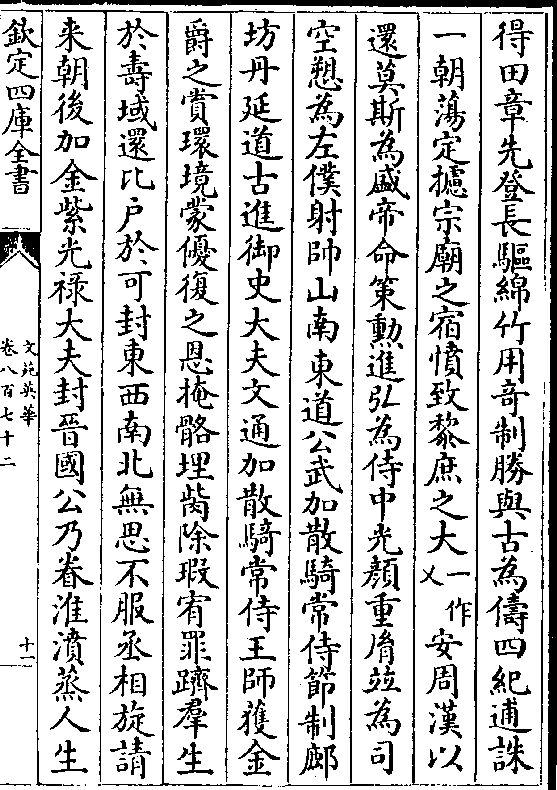 得田章先登長驅綿竹用竒制勝與古為儔四紀逋誅
一朝蕩定攄宗廟之宿憤致黎庶之大一作乂安周漢以
還莫斯為盛帝命策勲進弘為侍中光顔重𦙍並為司
空愬為左僕射帥山南東道公武加散騎常侍節制鄜
坊丹延道古進御史大夫文通加散騎常侍王師獲金
爵之賞環境蒙優復之恩掩骼埋胔除瑕宥罪躋羣生
於壽域還比户於可封東西南北無思不服丞相旋請
来朝後加金紫光禄大夫封晉國公乃眷淮濆蒸人生
欽定四庫全書
文苑英華
卷八百七十二
十一